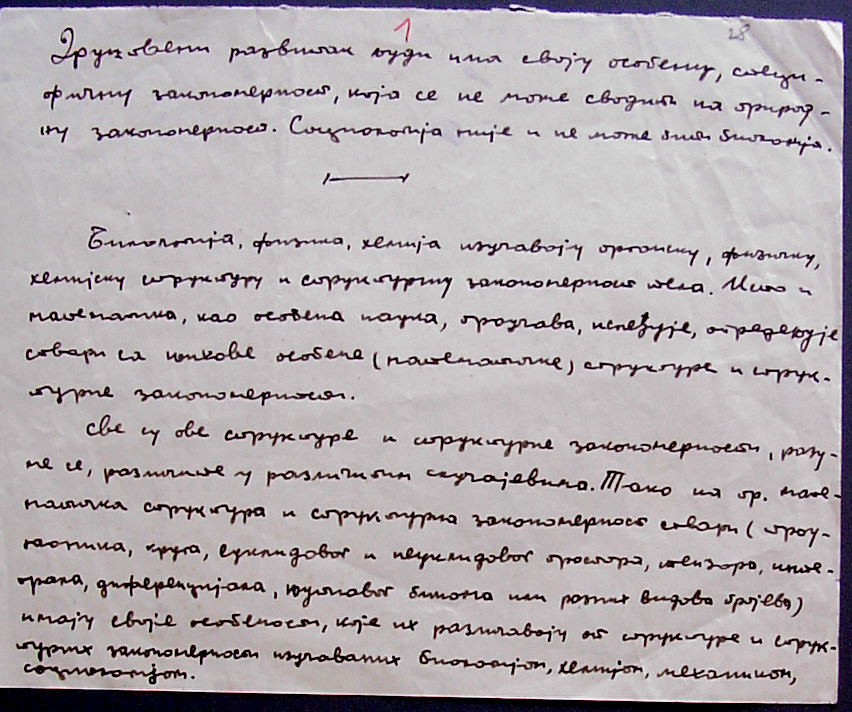 1
28
Друштвени развитак људи има своју особену, специ-
фичну закономерност, која се не може сводити на природ-
ну закономерност. Социологија није и не може бити биологија.
Биологија, физика, хемија изучавају органску, физичку,
хемијску структуру и структурну закономерност тела. Исто и
математика, као особена наука, проучава, испитује, определује
ствари са њихове особене (математичке) структуре и струк-
турне закономерности.
Све су ове структуре и структурне закономерности, разу-
ме се, различите у различитим случајевима. Тако на пр. мате-
матичка структура и структурна закономерност ствари (троу-
гаоника, круга, еуклидовог и неуклидовог простора, тензора, инте-
грала, диференцијала, њутновог бинома или разних видова бројева)
имају своје особености, које их различавају од структуре и струк-
турних закономерности изучаваних биологијом, хемијом, механиком,
социологијом.